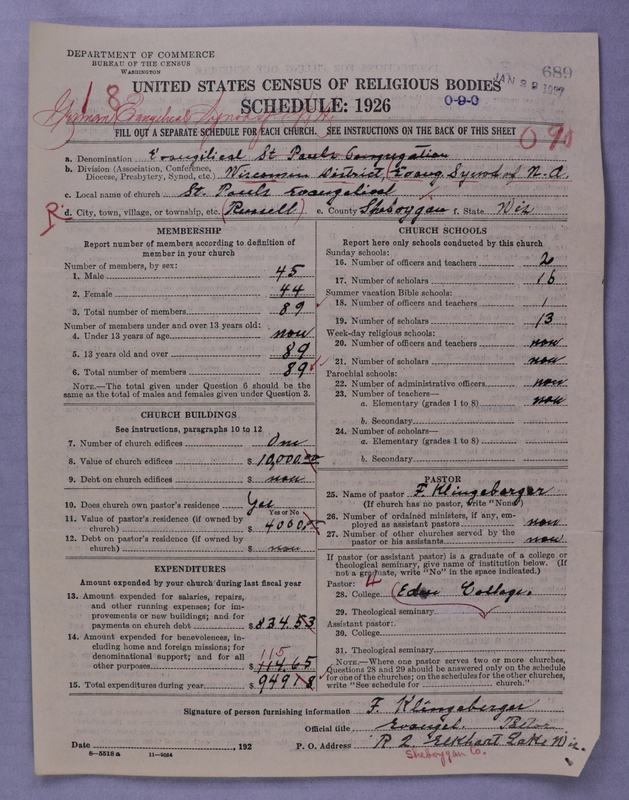 DEPARTMENT OF COMMERCE
BUREAU OF THE CENSUS
WASHINGTON
689
JAN 22 1927
UNITED STATES CENSUS OF RELIGIOUS BODIES
1 8
SCHEDULE: 1926
0-9-0
German Evangelical Synod of N.A.
FILL OUT A SEPARATE SCHEDULE FOR EACH CHURCH. SEE INSTRUCTIONS ON THE BACK OF THIS SHEET
090
a. Denomination Evangilical St Pauls Congregation
b. Division (Association, Conference, Diocese, Presbytery, Synod, etc.) Wisconsin District (Evang. Synod of N. A.
c. Local name of church St. Pauls Evangelical
R- d. City, town, village, or township, etc. (Russell) e. County Sheboygan f. State Wis
MEMBERSHIP
Report number of members according to definition of member in your church
Number of members, by sex:
1. Male 45
2. Female 44
3. Total number of members 89
Number of members under and over 13 years old:
4. Under 13 years of age non
5. 13 years old and over 89
6. Total number of members 89
NOTE.—The total given under Question 6 should be the same as the total of males and females given under Question 3.
CHURCH BUILDINGS
See instructions, paragraphs 10 to 12
7. Number of church edifices One
8. Value of church edifices $ 10,000.00
9. Debt on church edifices $ non
10. Does church own pastor's residence? Yes
Yes or No
11. Value of pastor's residence (if owned by church) $ 4000
12. Debt on pastor's residence (if owned by church) $ non
EXPENDITURES
Amount expended by your church during last fiscal year
13. Amount expended for salaries, repairs, and other running expenses; for improvements or new buildings; and for payments on church debt $ 834.53
14. Amount expended for benevolences, including home and foreign missions; for denominational support; and for all other purposes $ 114.65
115
15. Total expenditures during year $ 949 18
CHURCH SCHOOLS
Report here only schools conducted by this church
Sunday schools:
16. Number of officers and teachers 2
17. Number of scholars 16
Summer vacation Bible schools:
18. Number of officers and teachers 1
19. Number of scholars 13
Week-day religious schools:
20. Number of officers and teachers non
21. Number of scholars non
Parochial schools:
22. Number of administrative officers non
23. Number of teachers—
a. Elementary (grades 1 to 8) non
b. Secondary
24. Number of scholars—
a. Elementary (grades 1 to 8)
b. Secondary
PASTOR
25. Name of pastor F. Klingeberger
(If church has no pastor, write "None")
26. Number of ordained ministers, if any, employed as assistant pastors non
27. Number of other churches served by the pastor or his assistants non
If pastor (or assistant pastor) is a graduate of a college or theological seminary, give name of institution below. (If not a graduate, write "No" in the space indicated.)
Pastor: 4
28. College (Eden College.
29. Theological seminary
Assistant pastor:
30. College
31. Theological seminary
NOTE.—Where one pastor serves two or more churches, Questions 28 and 29 should be answered only on the schedule for one of the churches; on the schedules for the other churches, write "See schedule for church."
Signature of person furnishing information F. Klingeberger
Official title Evangel. Pastor
Date , 192 P. O. Address R 2. Elkhart Lake Wis.
8-5518a 11-9024 Sheboygan Co.